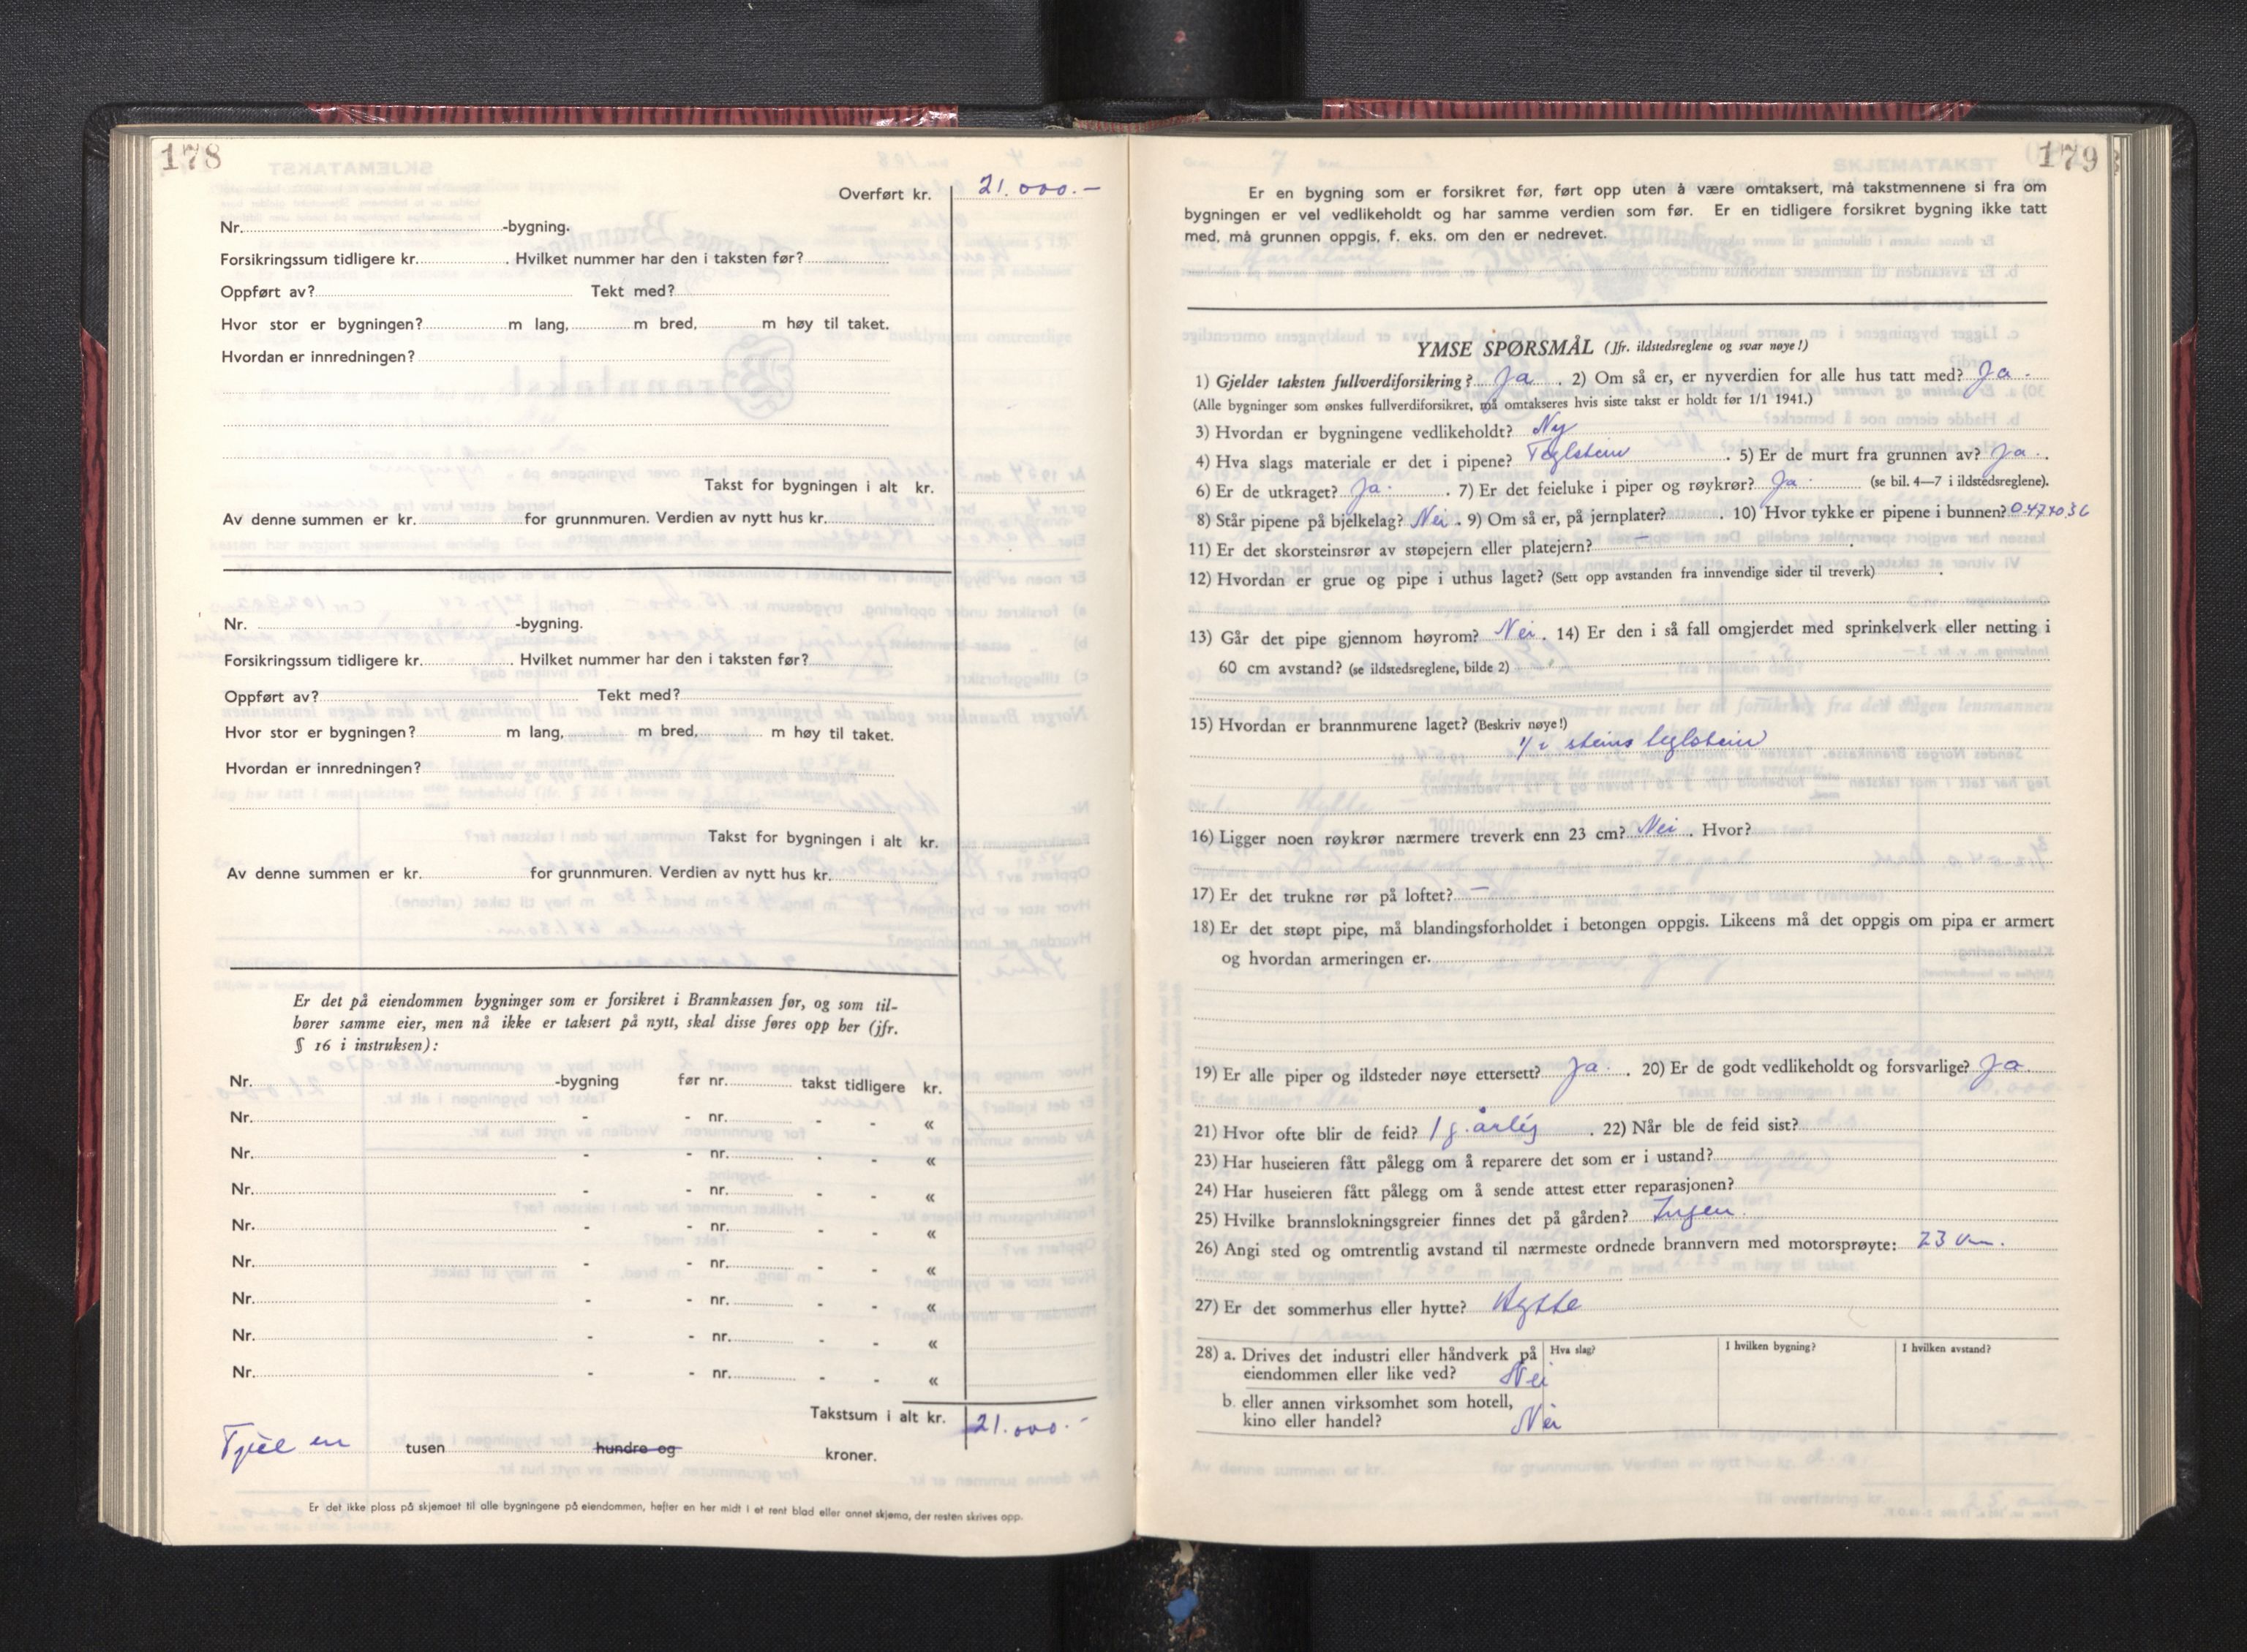 178
Overført kr. 21.000.-
Nr. -bygning.
Forsikringssum tidligere kr. . Hvilket nummer har den i taksten før?
Oppført av? Tekt med?
Hvor stor er bygningen? m lang, m bred, m høy til taket.
Hvordan er innredningen?
Takst for bygningen i alt kr.
Av denne summen er kr. for grunnmuren. Verdien av nytt hus kr.
Nr. -bygning.
Forsikringssum tidligere kr. . Hvilket nummer har den i taksten før?
Oppført av? Tekt med?
Hvor stor er bygningen? m lang, m bred, m høy til taket.
Hvordan er innredningen?
Takst for bygningen i alt kr.
Av denne summen er kr. for grunnmuren. Verdien av nytt hus kr.
Er det på eiendommen bygninger som er forsikret i Brannkassen før, og som til-
hører samme eier, men nå ikke er taksert på nytt, skal disse føres opp her (jfr.
§ 16 i instruksen):
Nr. -bygning før nr. takst tidligere kr.
Nr. - - nr. - - «
Nr. - - nr. - - «
Nr. - - nr. - - «
Nr. - - nr. - - «
Nr. - - nr. - - «
Nr. - - nr. - - «
Nr. - - nr. - - «
Nr. - - nr. - - «
Takstsum i alt kr. 21.000.-
Tjue en tusen hundre og kroner.
Er det ikke plass på skjemaet til alle bygningene på eiendommen, hefter en her midt i et rent blad eller annet skjema, der resten skrives opp.
179
Er en bygning som er forsikret før, ført opp uten å være omtaksert, må takstmennene si fra om
bygningen er vel vedlikeholdt og har samme verdien som før. Er en tidligere forsikret bygning ikke tatt
med, må grunnen oppgis, f. eks. om den er nedrevet.
YMSE SPØRSMÅL (Jfr. ildstedsreglene og svar nøye!)
1) Gjelder taksten fullverdiforsikring? Ja . 2) Om så er, er nyverdien for alle hus tatt med? Ja.
(Alle bygninger som ønskes fullverdiforsikret, må omtakseres hvis siste takst er holdt før 1/1 1941.)
3) Hvordan er bygningene vedlikeholdt? Ny
4) Hva slags materiale er det i pipene? Teglstein . 5) Er de murt fra grunnen av? Ja.
6) Er de utkraget? Ja. . 7) Er det feieluke i piper og røykrør? Ja. (se bil. 4—7 i ildstedsreglene).
8) Står pipene på bjelkelag? Nei . 9) Om så er, på jernplater? . 10) Hvor tykke er pipene i bunnen?
11) Er det skorsteinsrør av støpejern eller platejern? — .
12) Hvordan er grue og pipe i uthus laget? (Sett opp avstanden fra innvendige sider til treverk) .
13) Går det pipe gjennom høyrom? Nei . 14) Er den i så fall omgjerdet med sprinkelverk eller netting i
60 cm avstand? (se ildstedsreglene, bilde 2)
15) Hvordan er brannmurene laget? (Beskriv nøye!)
1/2 steins teglstein
16) Ligger noen røykrør nærmere treverk enn 23 cm? Nei . Hvor?
17) Er det trukne rør på loftet? —
18) Er det støpt pipe, må blandingsforholdet i betongen oppgis. Likeens må det oppgis om pipa er armert
og hvordan armeringen er.
19) Er alle piper og ildsteder nøye ettersett? Ja. . 20) Er de godt vedlikeholdt og forsvarlige? Ja
21) Hvor ofte blir de feid? 1 g. årlig . 22) Når ble de feid sist?
23) Har huseieren fått pålegg om å reparere det som er i ustand?
24) Har huseieren fått pålegg om å sende attest etter reparasjonen?
25) Hvilke brannslokningsgreier finnes det på gården? Ingen.
26) Angi sted og omtrentlig avstand til nærmeste ordnede brannvern med motorsprøyte: 23 km.
27) Er det sommerhus eller hytte? Hytte
28) a. Drives det industri eller håndverk på Hva slag? I hvilken bygning? I hvilken avstand?
eiendommen eller like ved? Nei
b. eller annen virksomhet som hotell,
kino eller handel? Nei